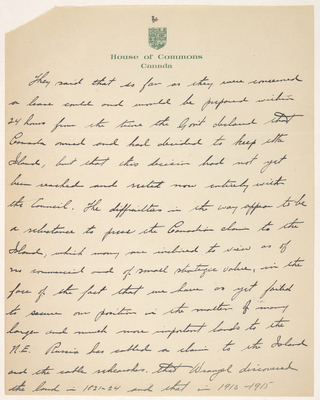 House of Commons
Canada
They said that so far as they were concerned
a lease could and would be prepared within
24 hours from the time the Gov't declared that
Canada owned and had decided to keep the
Island, but that this decision had not yet
been reached and rested now entirely with
the Council. The difficulties in the way appear to be
a reluctance to press the Canadian claim to the
Island, which many are inclined to view as of
no commercial and of small strategic value, in the
face of the fact that we have as yet failed
to secure our position in the matter of many
larger and much more important lands to the
N.E. Russia has cabled a claim to the Island
and the cable rehearses that Wrangel discovered
the land in 1821-24 and that in 1910-1915